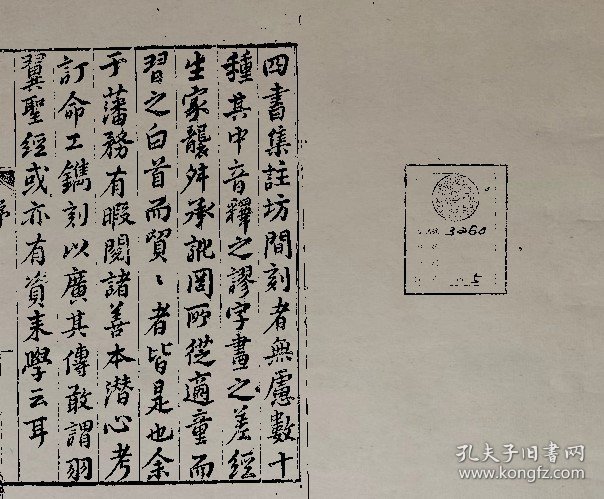 四書集註坊間刻者無慮數十
種其中音釋之謬字畫之差經
生家襲舛承訛罔所從適童而
習之白首而貿〻者皆是也余
于藩務有暇閱諸善本潛心考
訂命工鐫刻以廣其傳敢謂羽
翼聖經或亦有資来學云耳
序
3260
5
孔夫子旧书网
www.kongfz.com